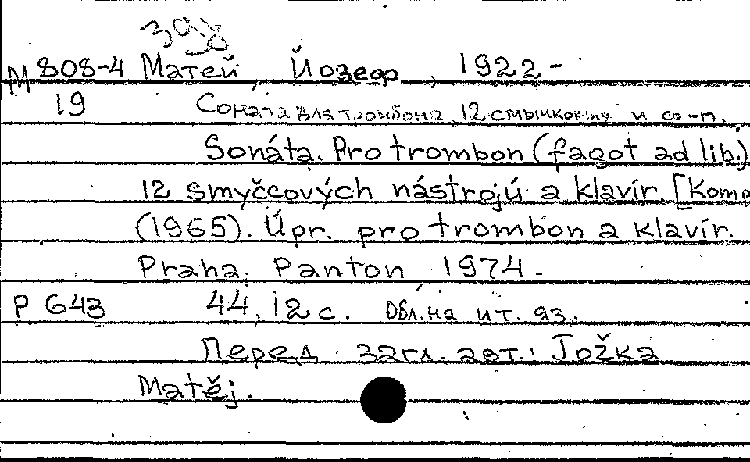 398
М 808-4 Матей, Йозеф, 1922-
19 Соната для тромбона, 12 смычковых и ф-п.
Sonáta. Pro trombon (fagot ad lib.)
12 smyčcových nástrojů a klavír. [Komp
(1965). Úpr. pro trombon a klavír.
Praha, Panton 1974.
P 643 44, 12 с. Обл. на ит. яз.
Перед загл. авт.: Jožka
Matěj.